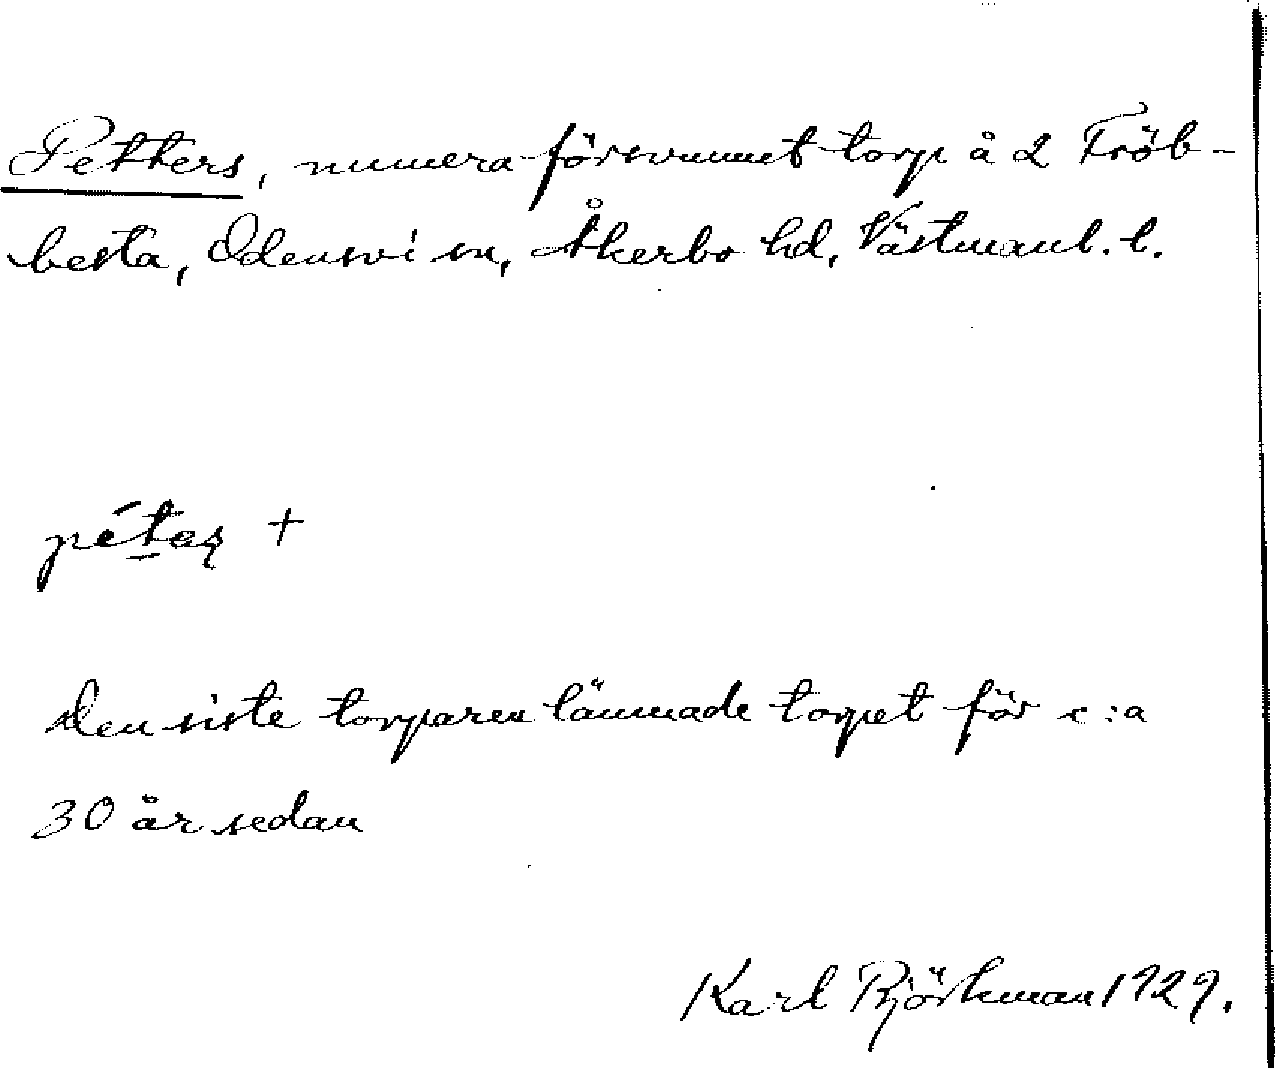 Petters, numera försvunnet torp å 2 Fröb-
besta, Odensvi sn, Åkerbo hd, Västmanl. l.
pétaʂ +
Den siste torparen lämnade torpet för c:a
30 år sedan
Karl Björkman 1929.